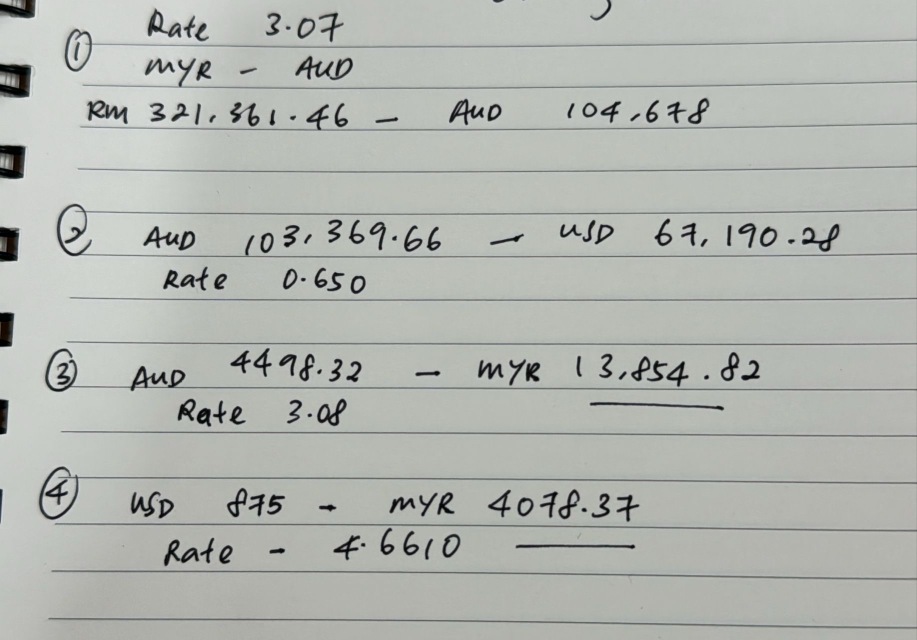 ① Rate 3.07
MYR - AUD
RM 321,361.46 - AUD 104,678
② AUD 103,369.66 - USD 67,190.28
Rate 0.650
③ AUD 4498.32 - MYR 13,854.82
Rate 3.08
④ USD 875 - MYR 4078.37
Rate - 4.6610